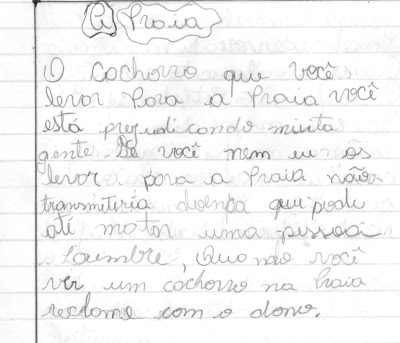 A Praia
O cachorro que você
levar para a Praia você
está prejudicando muita
gente. Se você nem eu os
levar para a Praia não
transmitiria doença que pode
até matar uma pessoa
Lembre, Quando você
ver um cachorro na Praia
reclame com o dono.